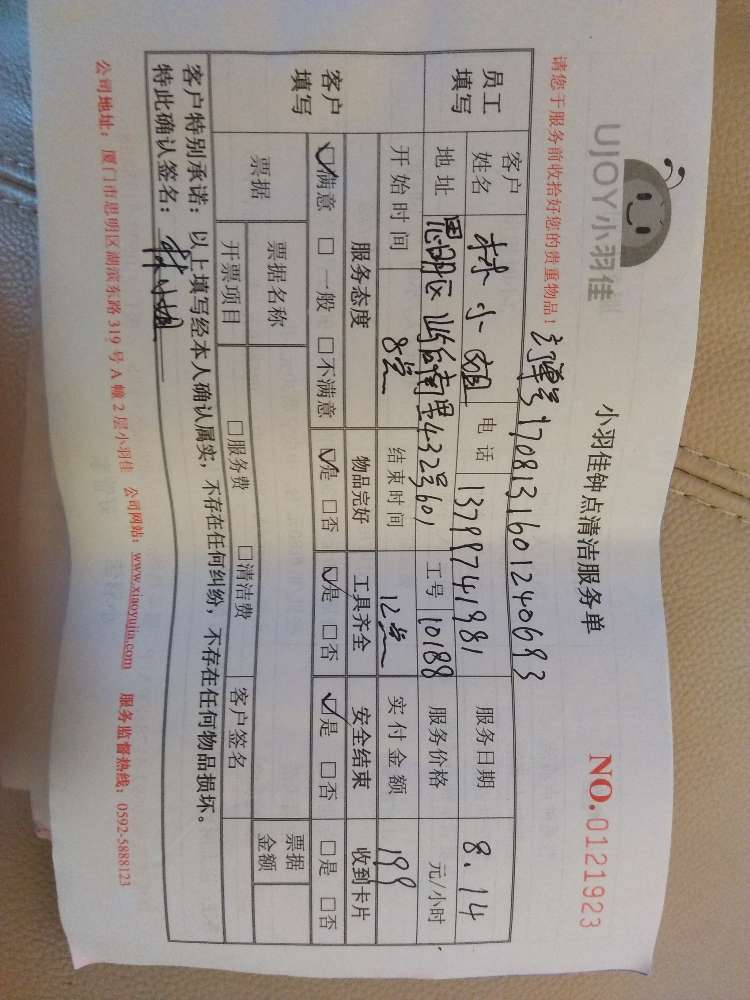 UJOY小羽佳
小羽佳钟点清洁服务单
NO.0121923
请您于服务前收拾好您的贵重物品!
订单号1708131601240693
员工填写
客户姓名 林小姐 电话 13799741981 服务日期 8.14
地址 思明区 南里432号601 工号 10188 服务价格 元/小时
开始时间 8点 结束时间 12点 实付金额 199
客户填写
服务态度 物品完好 工具齐全 安全结束 收到卡片
☑满意 □一般 □不满意 ☑是 □否 ☑是 □否 ☑是 □否 □是 □否
票据 票据名称 票据金额
开票项目 □服务费 □清洁费 客户签名
客户特别承诺：以上填写经本人确认属实，不存在任何纠纷，不存在任何物品损坏。
特此确认签名：林小姐
公司地址：厦门市思明区湖滨东路319号A幢2层小羽佳 公司网站：www.xiaoyujia.com 服务监督热线：0592-5888123